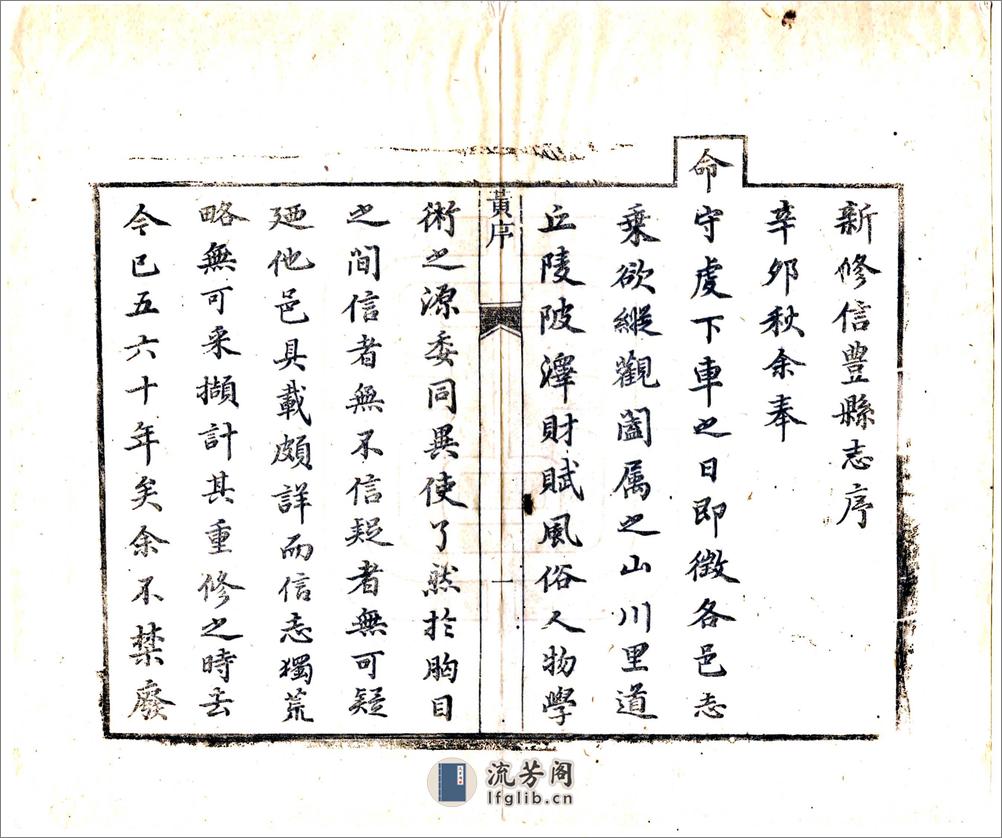 新修信豐縣志序
辛夘秋余奉
命守虔下車之日即徴各邑志
乗欲縱觀闔属之山川里道
丘陵陂澤財賦風俗人物學
術之源委同異使了然於胸目
之間信者無不信疑者無可疑
廼他邑具載頗詳而信志獨荒
略無可采擷計其重修之時去
今已五六十年矣余不禁廢
黃序
一
流芳阁
lfglib.cn